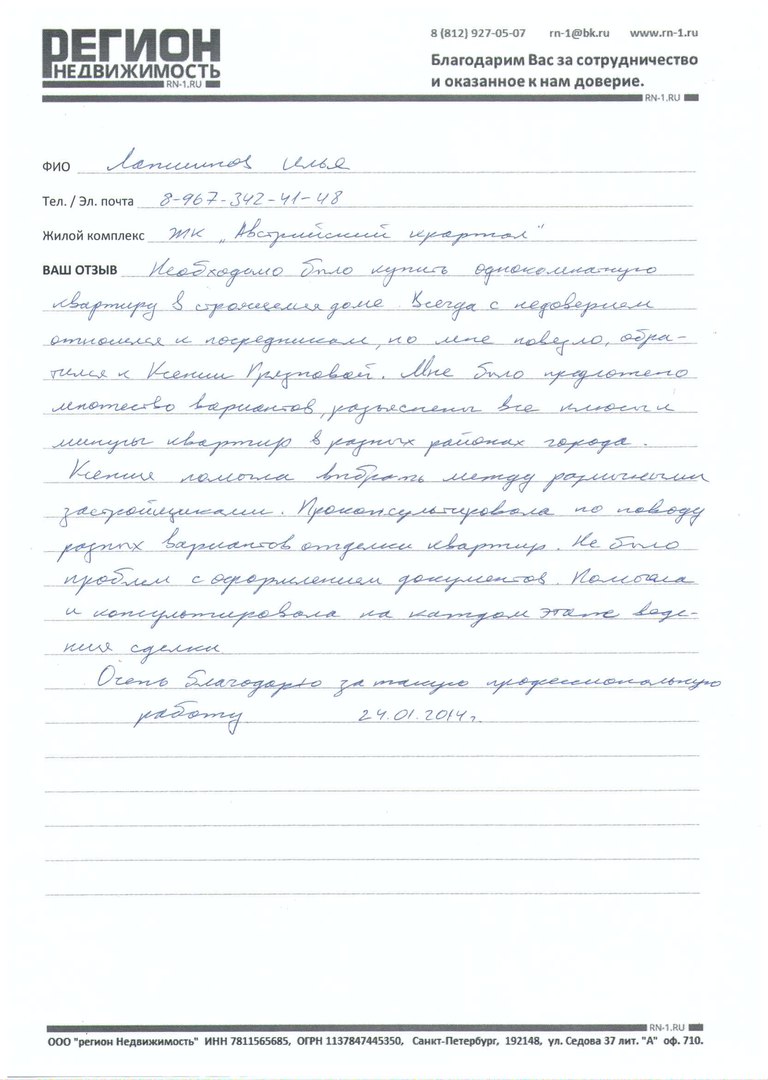 РЕГИОН
НЕДВИЖИМОСТЬ
RN-1.RU
8 (812) 927-05-07 rn-1@bk.ru www.rn-1.ru
Благодарим Вас за сотрудничество
и оказанное к нам доверие.
RN-1.RU
ФИО Илья
Тел. / Эл. почта 8-967-342-41-48
Жилой комплекс ЖК „Австрийский квартал"
ВАШ ОТЗЫВ Необходимо было купить однокомнатную
квартиру в строящемся доме. Всегда с недоверием
относился к посредникам, но мне повезло, обра-
тился к Ксении. Мне было предложено
множество вариантов, разъяснены все плюсы и
минусы квартир в разных районах города.
Ксения помогла выбрать между различными
застройщиками. Проконсультировала по поводу
разных вариантов отделки квартир. Не было
проблем с оформлением документов. Помогала
и консультировала на каждом этапе веде-
ния сделки
Очень благодарю за такую профессиональную
работу 24.01.2014г.
RN-1.RU
ООО "регион Недвижимость" ИНН 7811565685, ОГРН 1137847445350, Санкт-Петербург, 192148, ул. Седова 37 лит. "А" оф. 710.